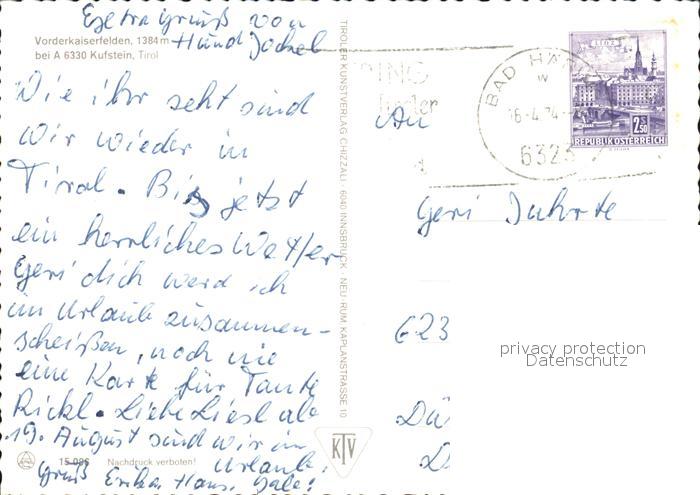 Extra Gruß von
Hund Jockel
Vorderkaiserfelden, 1384 m
bei A 6330 Kufstein, Tirol
Wie ihr seht sind
wir wieder in
Tirol. Bis jetzt
ein herrliches Wetter
Geri dich werd ich
im Urlaub zusammen-
scheißen, noch nie
eine Karte für Tante
Rickl. Liebe Liesl ab
19. August sind wir im
Urlaub.
Gruß Erika Hans. Gabi
15 086 Nachdruck verboten!
TIROLER KUNSTVERLAG CHIZZALI · 6040 INNSBRUCK · NEU-RUM KAPLANSTRASSE 10
KTV
BAD HÄRING
6323
LINZ
2.50
REPUBLIK ÖSTERREICH
An
Geri
623
privacy protection
Datenschutz